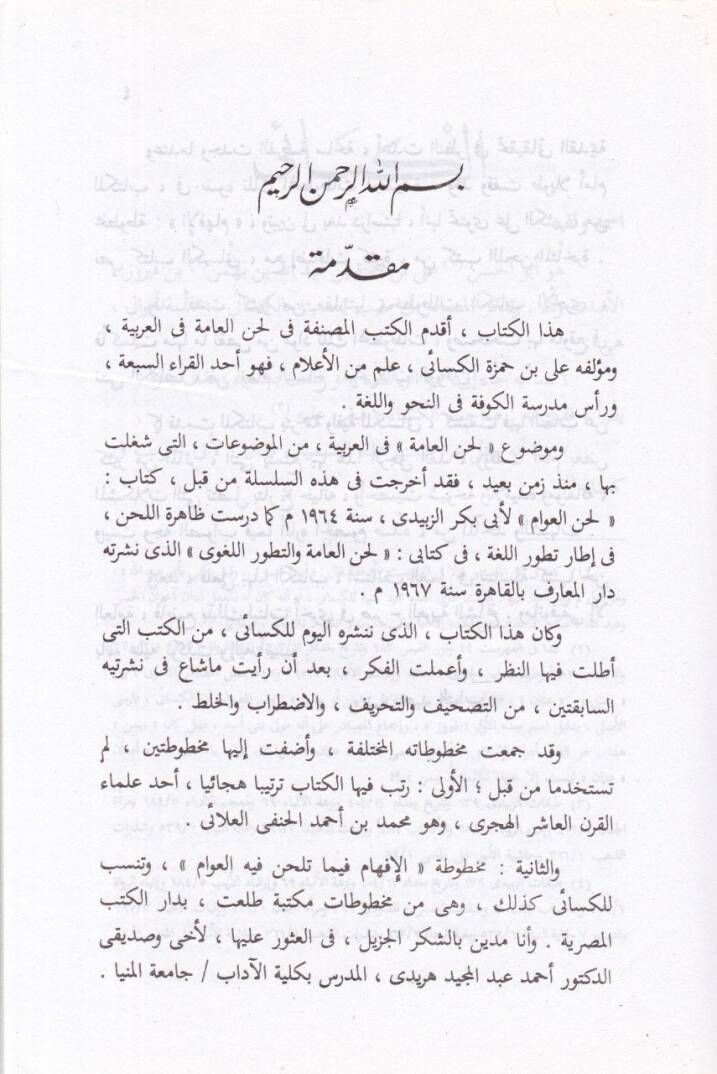 بسم الله الرحمن الرحيم
مقدّمة
هذا الكتاب ، أقدم الكتب المصنفة فى لحن العامة فى العربية ،
ومؤلفه على بن حمزة الكسائى ، علم من الأعلام ، فهو أحد القراء السبعة ،
ورأس مدرسة الكوفة فى النحو واللغة .
وموضوع « لحن العامة » فى العربية ، من الموضوعات ، التى شغلت
بها ، منذ زمن بعيد ، فقد أخرجت فى هذه السلسلة من قبل ، كتاب :
« لحن العوام » لأبى بكر الزبيدى ، سنة ١٩٦٤ م كما درست ظاهرة اللحن ،
فى إطار تطور اللغة ، فى كتابى : « لحن العامة والتطور اللغوى » الذى نشرته
دار المعارف بالقاهرة سنة ١٩٦٧ م .
وكان هذا الكتاب ، الذى ننشره اليوم للكسائى ، من الكتب التى
أطلت فيها النظر ، وأعملت الفكر ، بعد أن رأيت ماشاع فى نشرتيه
السابقتين ، من التصحيف والتحريف ، والاضطراب والخلط .
وقد جمعت مخطوطاته المختلفة ، وأضفت إليها مخطوطتين ، لم
تستخدما من قبل ؛ الأولى : رتب فيها الكتاب ترتيبا هجائيا ، أحد علماء
القرن العاشر الهجرى ، وهو محمد بن أحمد الحنفى العلائى .
والثانية : مخطوطة « الإفهام فيما تلحن فيه العوام » ، وتنسب
للكسائى كذلك ، وهى من مخطوطات مكتبة طلعت ، بدار الكتب
المصرية . وأنا مدين بالشكر الجزيل ، فى العثور عليها ، لأخى وصديقى
الدكتور أحمد عبد المجيد هريدى ، المدرس بكلية الآداب / جامعة المنيا .